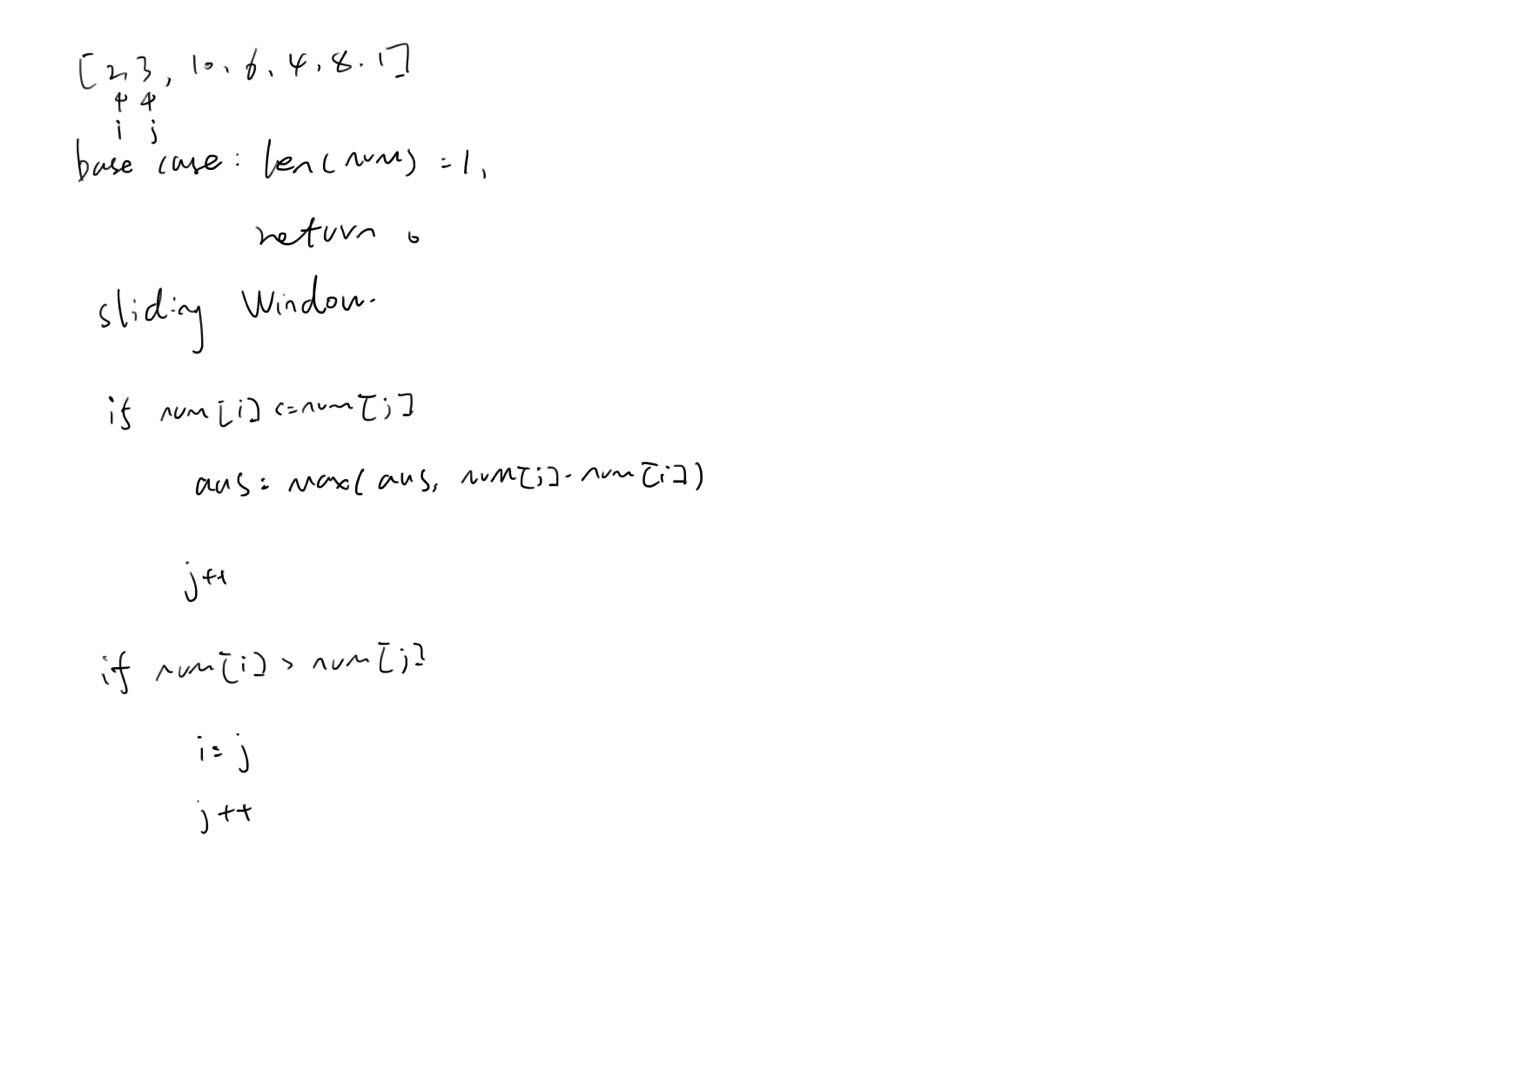 [2, 3, 10, 6, 4, 8, 1]
i j
base case: len(num) = 1,
return 0
sliding window.
if num[i] <= num[j]
ans = max(ans, num[j] - num[i])
j++
if num[i] > num[j]
i = j
j++